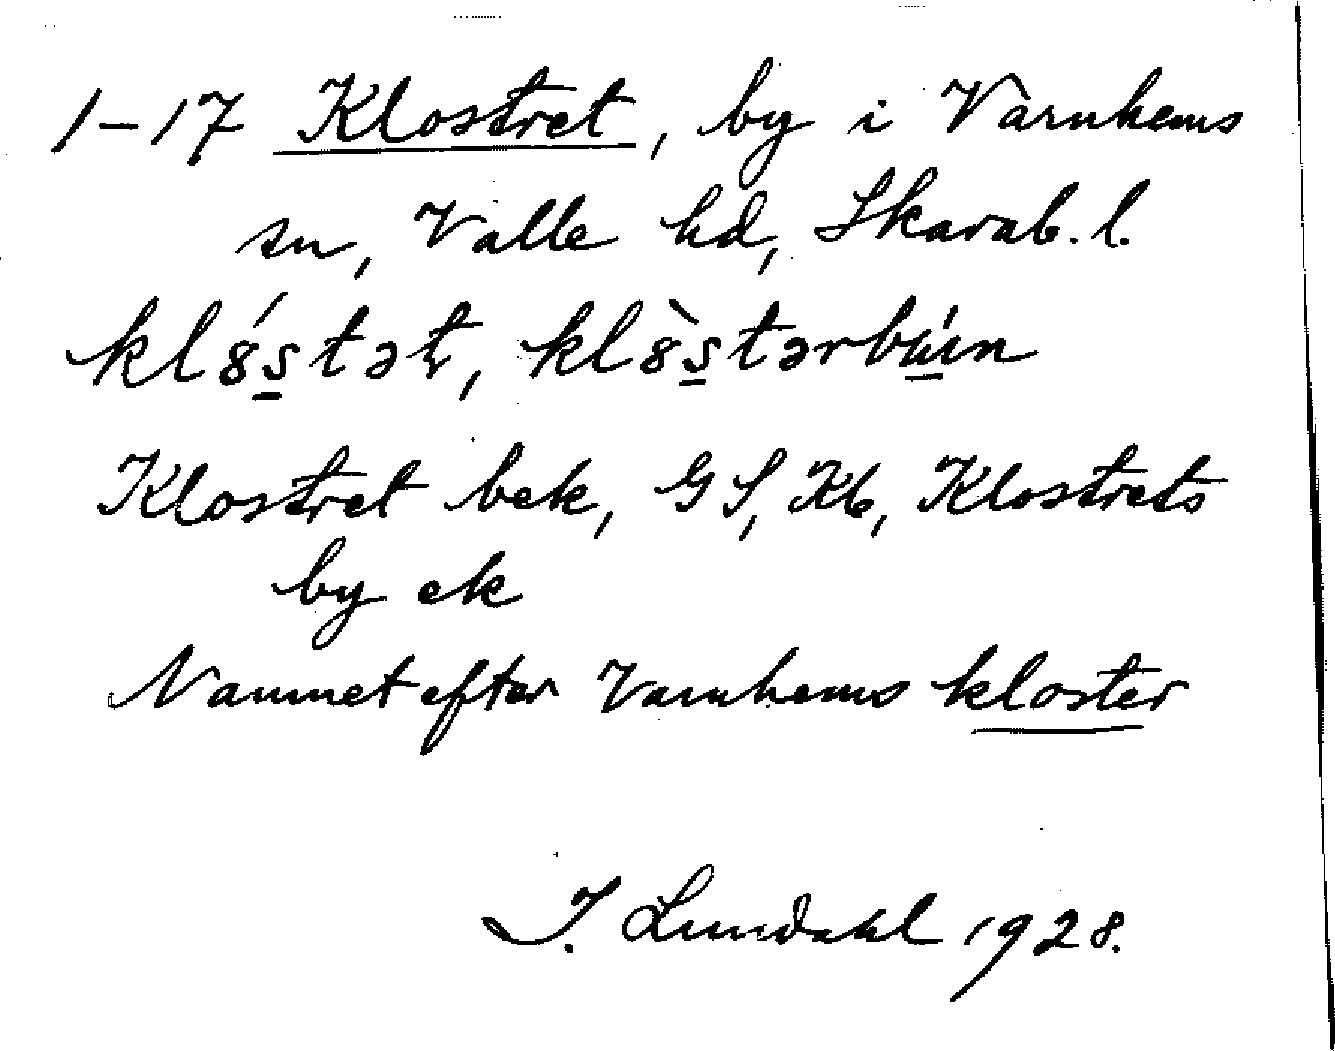 1–17 Klostret, by i Varnhems
sn, Valle hd, Skarab. l.
kl8́stət, kl8̀stərbýin
Klostret bek, GS, Kb, Klostrets
by ek
Namnet efter Varnhems kloster
I. Lundahl 1928.